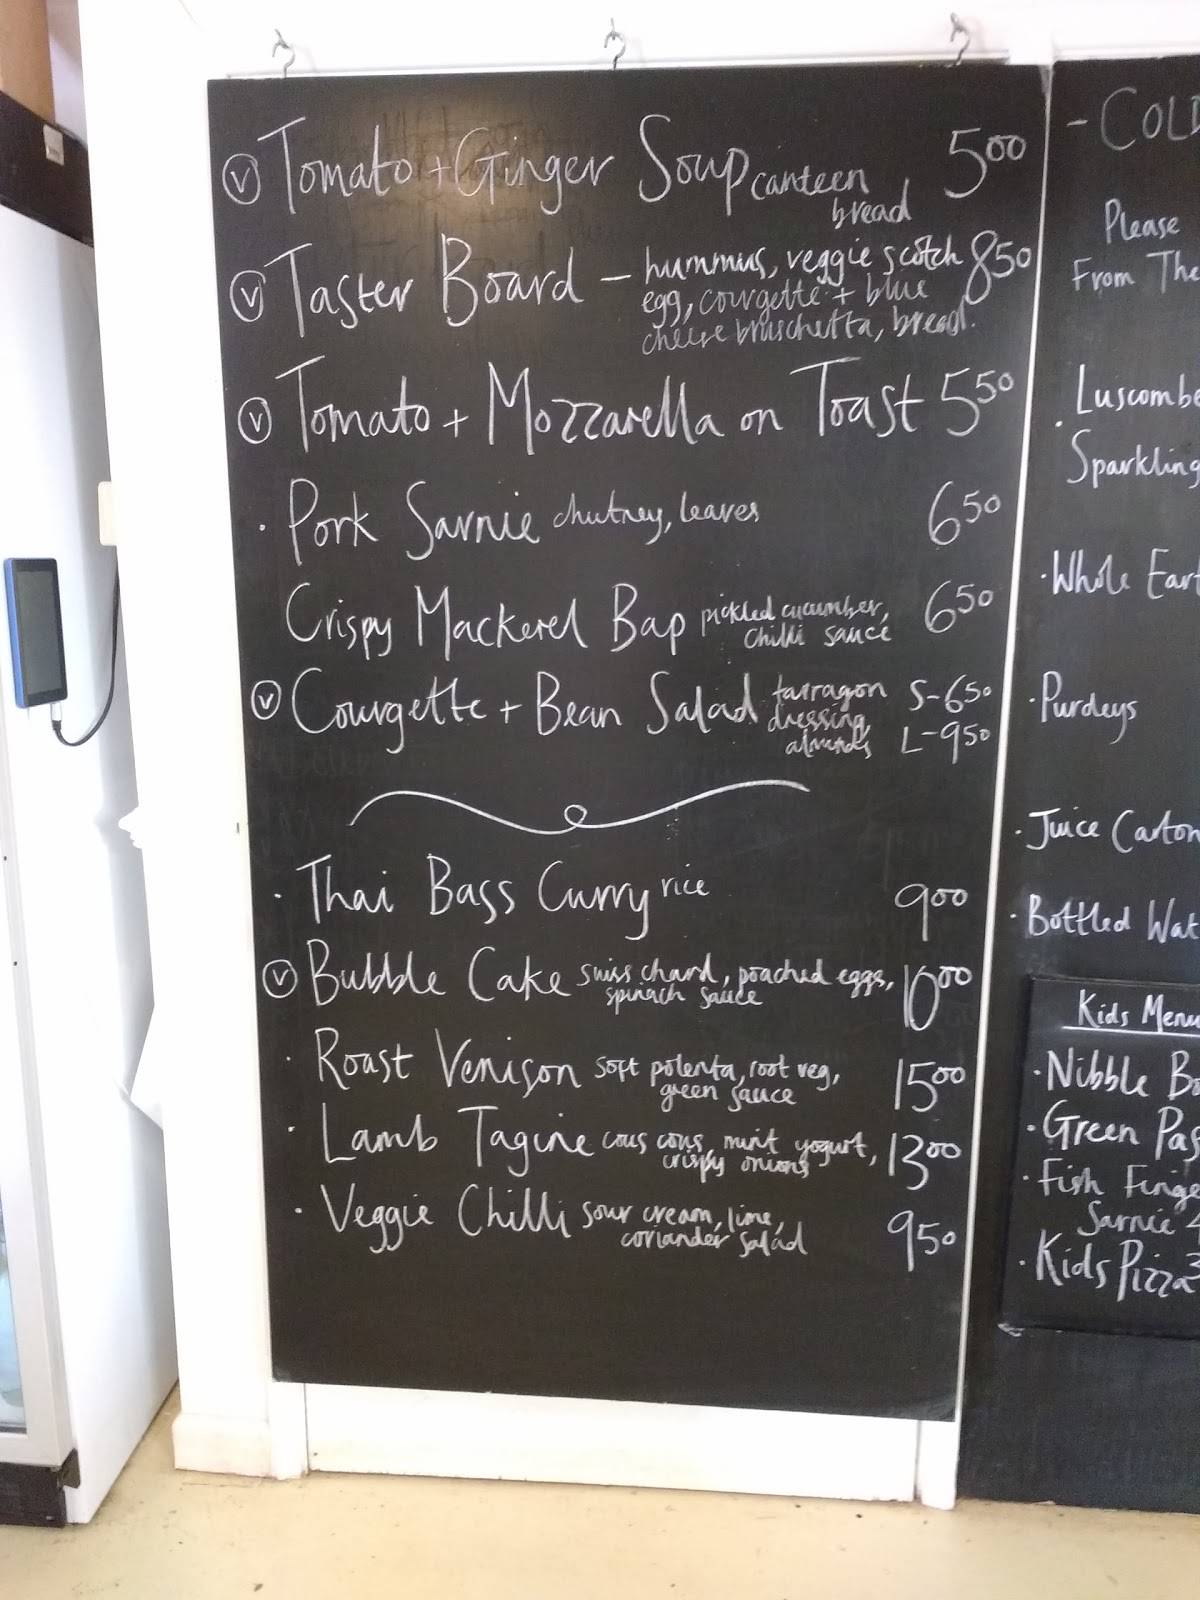 Ⓥ Tomato + Ginger Soup canteen bread 500
Ⓥ Taster Board - hummus, veggie scotch 850
egg, courgette + blue
cheese bruschetta, bread.
Ⓥ Tomato + Mozzarella on Toast 550
· Pork Sarnie chutney, leaves 650
Crispy Mackerel Bap pickled cucumber, 650
chilli sauce
Ⓥ Courgette + Bean Salad tarragon S-650
dressing,
almonds L-950
· Thai Bass Curry rice 900
Ⓥ Bubble Cake swiss chard, poached eggs, 1000
spinach sauce
· Roast Venison soft polenta, root veg, 1500
green sauce
· Lamb Tagine cous cous, mint yogurt, 1300
crispy onions
· Veggie Chilli sour cream, lime, 950
coriander salad
- COLD
Please
From The
· Luscombe
Sparkling
· Whole Eart
· Purdeys
· Juice Carton
· Bottled Wat
Kids Menu
· Nibble Bo
· Green Pas
· Fish Finge
Sarnie 4
· Kids Pizza 3